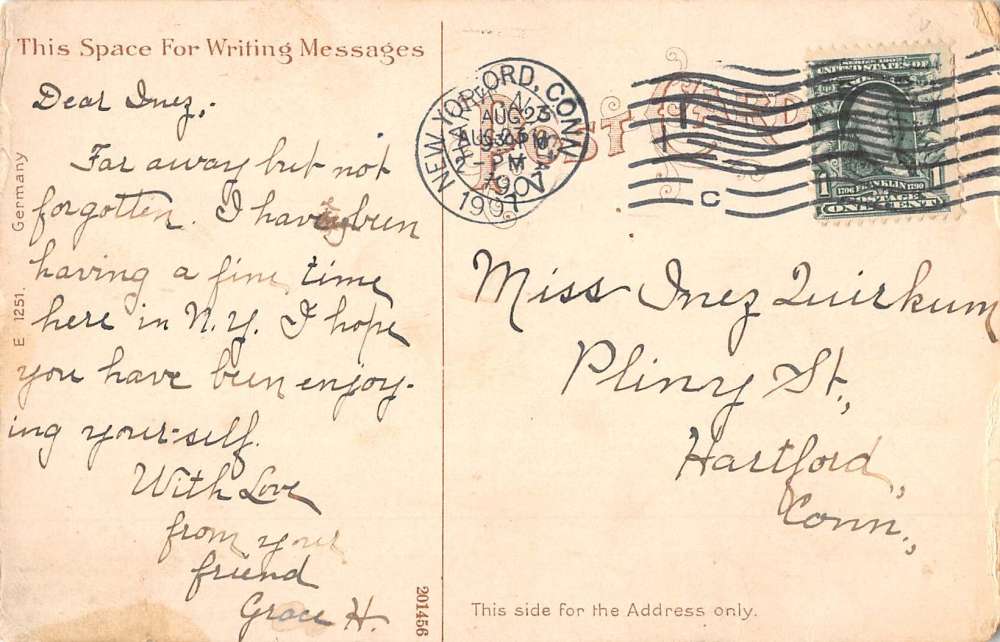 This Space For Writing Messages
Dear Inez,:
Far away but not
forgotten. I have been
having a fine time
here in N.Y. I hope
you have been enjoy-
ing your-self.
With Love
from your
friend
Grace H.
E 1251. Germany
201456
POST CARD
NEW YO
HARTFORD, CONN.
AUG 23
PM
1907
C
SERIES 1902
UNITED STATES OF
1 1
1706 FRANKLIN 1790
POSTAGE
ONE CENT
Miss Inez Quirkum
Pliny St.,
Hartford,
Conn.,
This side for the Address only.